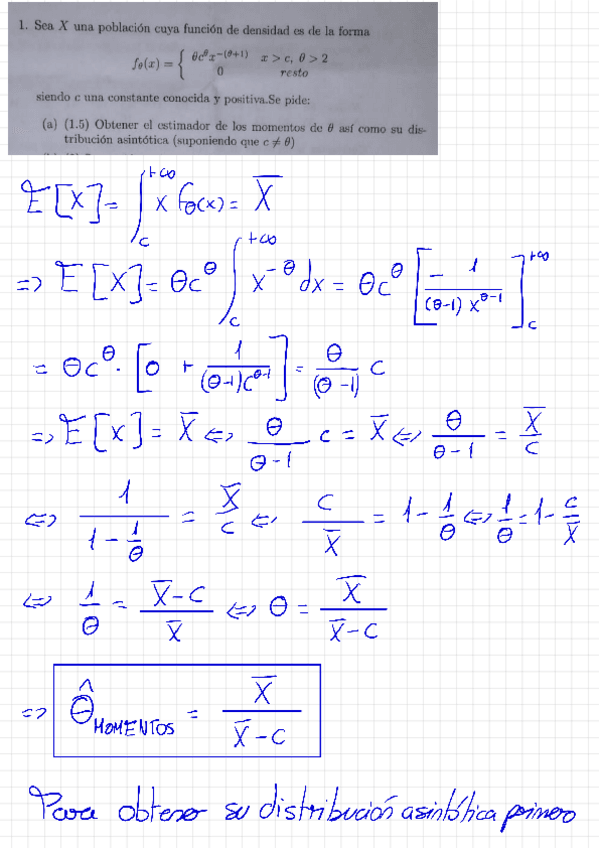 1. Sea X una población cuya función de densidad es de la forma
f_θ(x) = { θc^θ x^−(θ+1)   x > c, θ > 2
0   resto
siendo c una constante conocida y positiva.Se pide:
(a) (1.5) Obtener el estimador de los momentos de θ así como su dis-
tribución asintótica (suponiendo que c ≠ θ)
E[X] = ∫_c^{+∞} x f_θ(x) = X̄
=> E[X] = θc^θ ∫_c^{+∞} x^{-θ} dx = θc^θ [ - 1/((θ-1) x^{θ-1}) ]_c^{+∞}
= θc^θ · [ 0 + 1/((θ-1)c^{θ-1}) ] = θ/(θ-1) c
=> E[X] = X̄ <=> θ/(θ-1) c = X̄ <=> θ/(θ-1) = X̄/c
<=> 1/(1 - 1/θ) = X̄/c <=> c/X̄ = 1 - 1/θ <=> 1/θ = 1 - c/X̄
<=> 1/θ = (X̄ - c)/X̄ <=> θ = X̄/(X̄ - c)
=> θ̂_MOMENTOS = X̄/(X̄ - c)
Para obtener su distribución asintótica primero